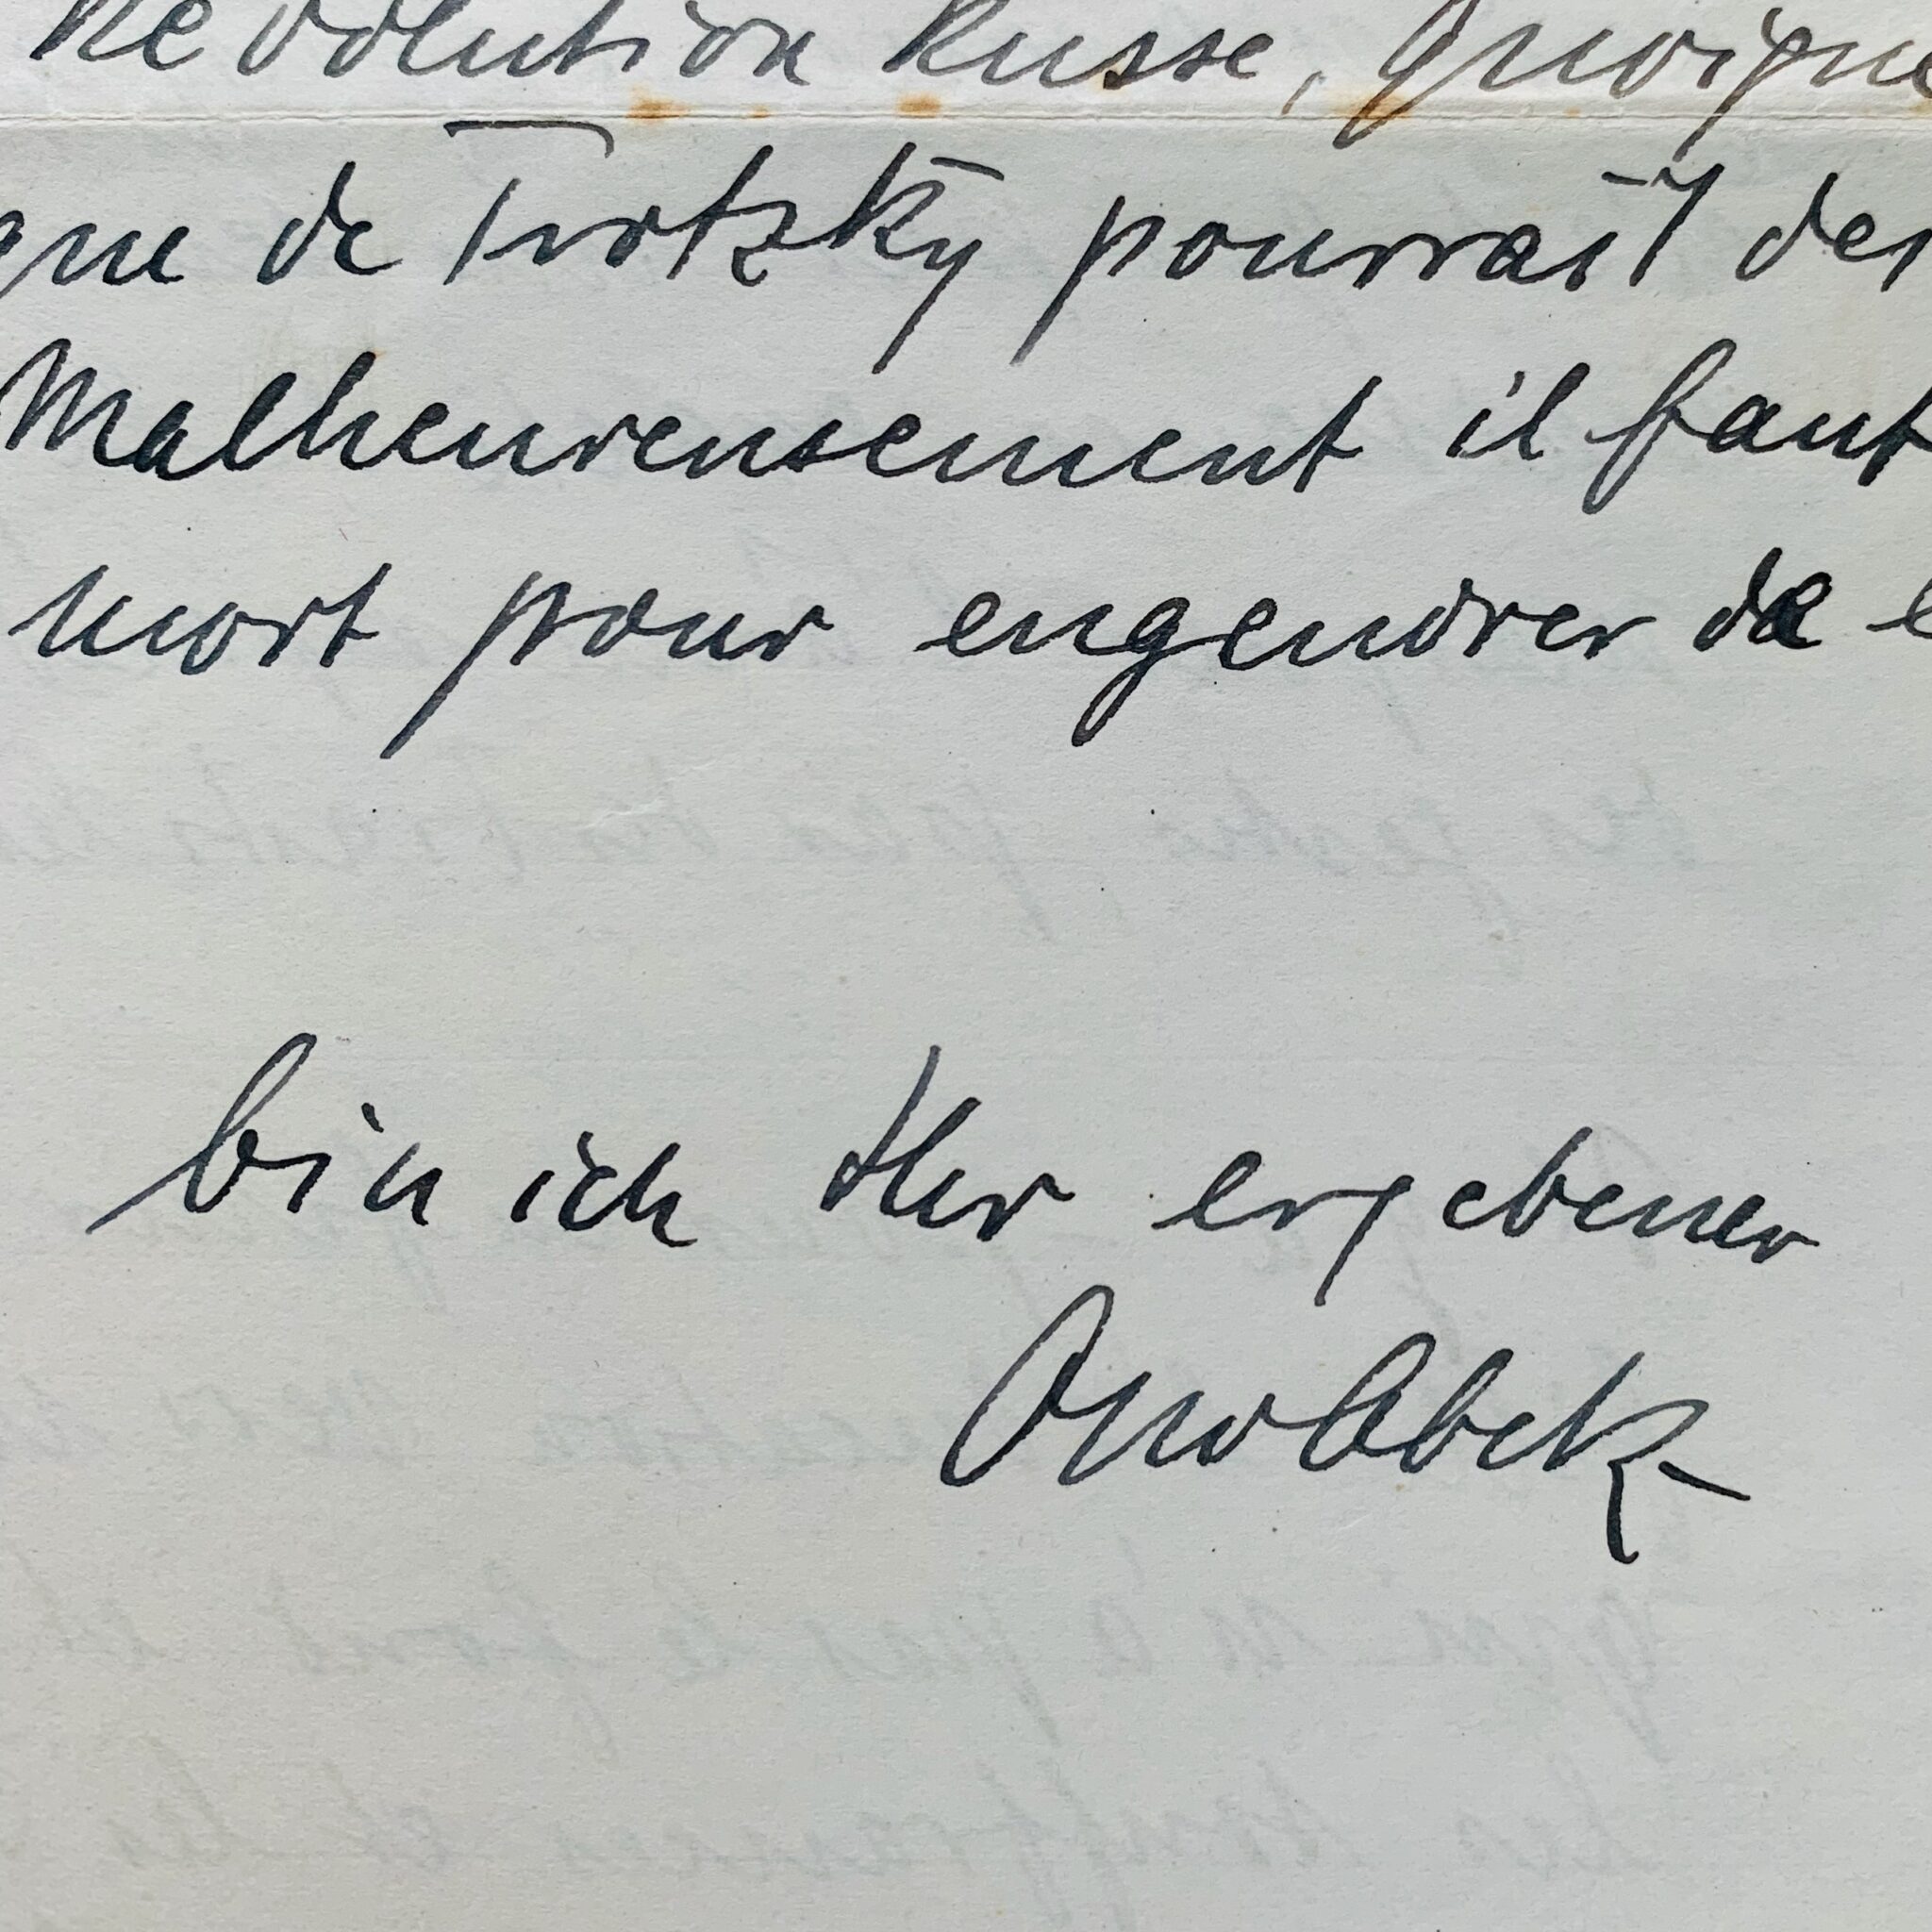 Revolution Russe, quoique
que de Trotzky pourrait des
Malheureusement il faut
mort pour engendrer de
bin ich Ihr ergebener